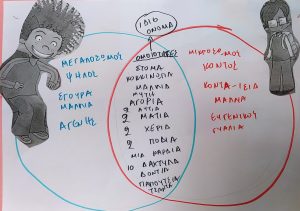 ΙΔΙΟ
ΟΝΟΜΑ
ΟΜΟΙΟΤΗΤΕΣ
ΜΕΓΑΛΟΣΩΜΟΣ
ΨΗΛΟΣ
ΣΓΟΥΡΑ
ΜΑΛΛΙΑ
ΑΓΕΝΗΣ
ΣΤΟΜΑ
ΜΑΛΛΙΑ
ΑΓΟΡΙΑ
2 ΑΥΤΙΑ
2 ΜΑΤΙΑ
2 ΧΕΡΙΑ
2 ΠΟΔΙΑ
ΜΙΑ ΚΑΡΔΙΑ
10 ΔΑΧΤΥΛΑ
ΔΟΝΤΙΑ
ΠΑΠΟΥΤΣΙΑ
ΜΙΚΡΟΣΩΜΟΣ
ΚΟΝΤΟΣ
ΚΟΝΤΑ-ΙΣΙΑ
ΜΑΛΛΙΑ
ΕΥΓΕΝΙΚΟΣ
ΓΥΑΛΙΑ